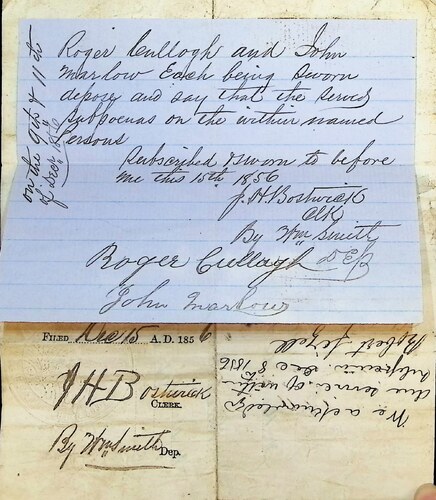 Roger Cullogh and John
Marlow Each being Sworn
depose and say that the Served
Subpoenas on the within named
Persons
on the 9th & 11th
of Decr 1856
Subscribed & Sworn to before
me this 15th 1856
J. H. Bostwick
Clk
By Wm Smith
Dep
Roger Cullagh
John Marlow
FILED Dec 15 A. D. 1856
J H Bostwick
CLERK.
By Wm Smith Dep.
We acknowledge
due service of within
Subpoena Dec 8th 1856
Robert